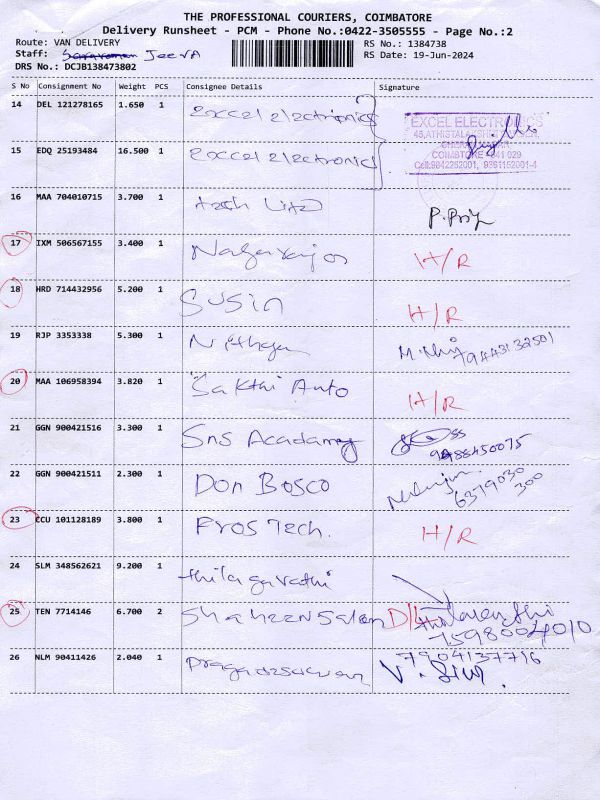 THE PROFESSIONAL COURIERS, COIMBATORE
Delivery Runsheet - PCM - Phone No.:0422-3505555 - Page No.:2
Route: VAN DELIVERY RS No.: 1384738
Staff: JEEVA RS Date: 19-Jun-2024
DRS No.: DCJB138473802
S No Consignment No Weight PCS Consignee Details Signature
14 DEL 121278165 1.650 1 Excel electronics
EXCEL ELECTRONICS
COIMBTORE 641 029
Cell:9842252001, 9361152001-4
15 EDQ 25193484 16.500 1 Excel electronics
16 MAA 704010715 3.700 1 P.Priy
17 IXM 506567155 3.400 1 Nagarajan H/R
18 HRD 714432956 5.200 1 SUSIN H/R
19 RJP 3353338 5.300 1
20 MAA 106958394 3.820 1 Sakthi Auto H/R
21 GGN 900421516 3.300 1 Sns Acadamy
9488450075
22 GGN 900421511 2.300 1 Don Bosco
6379030
300
23 CCU 101128189 3.800 1 Pros Tech. H/R
24 SLM 348562621 9.200 1 thilagavathi
25 TEN 7714146 6.700 2 Shaheen Salen D/L
7598004010
26 NLM 90411426 2.040 1 7904137716
V. Siva.